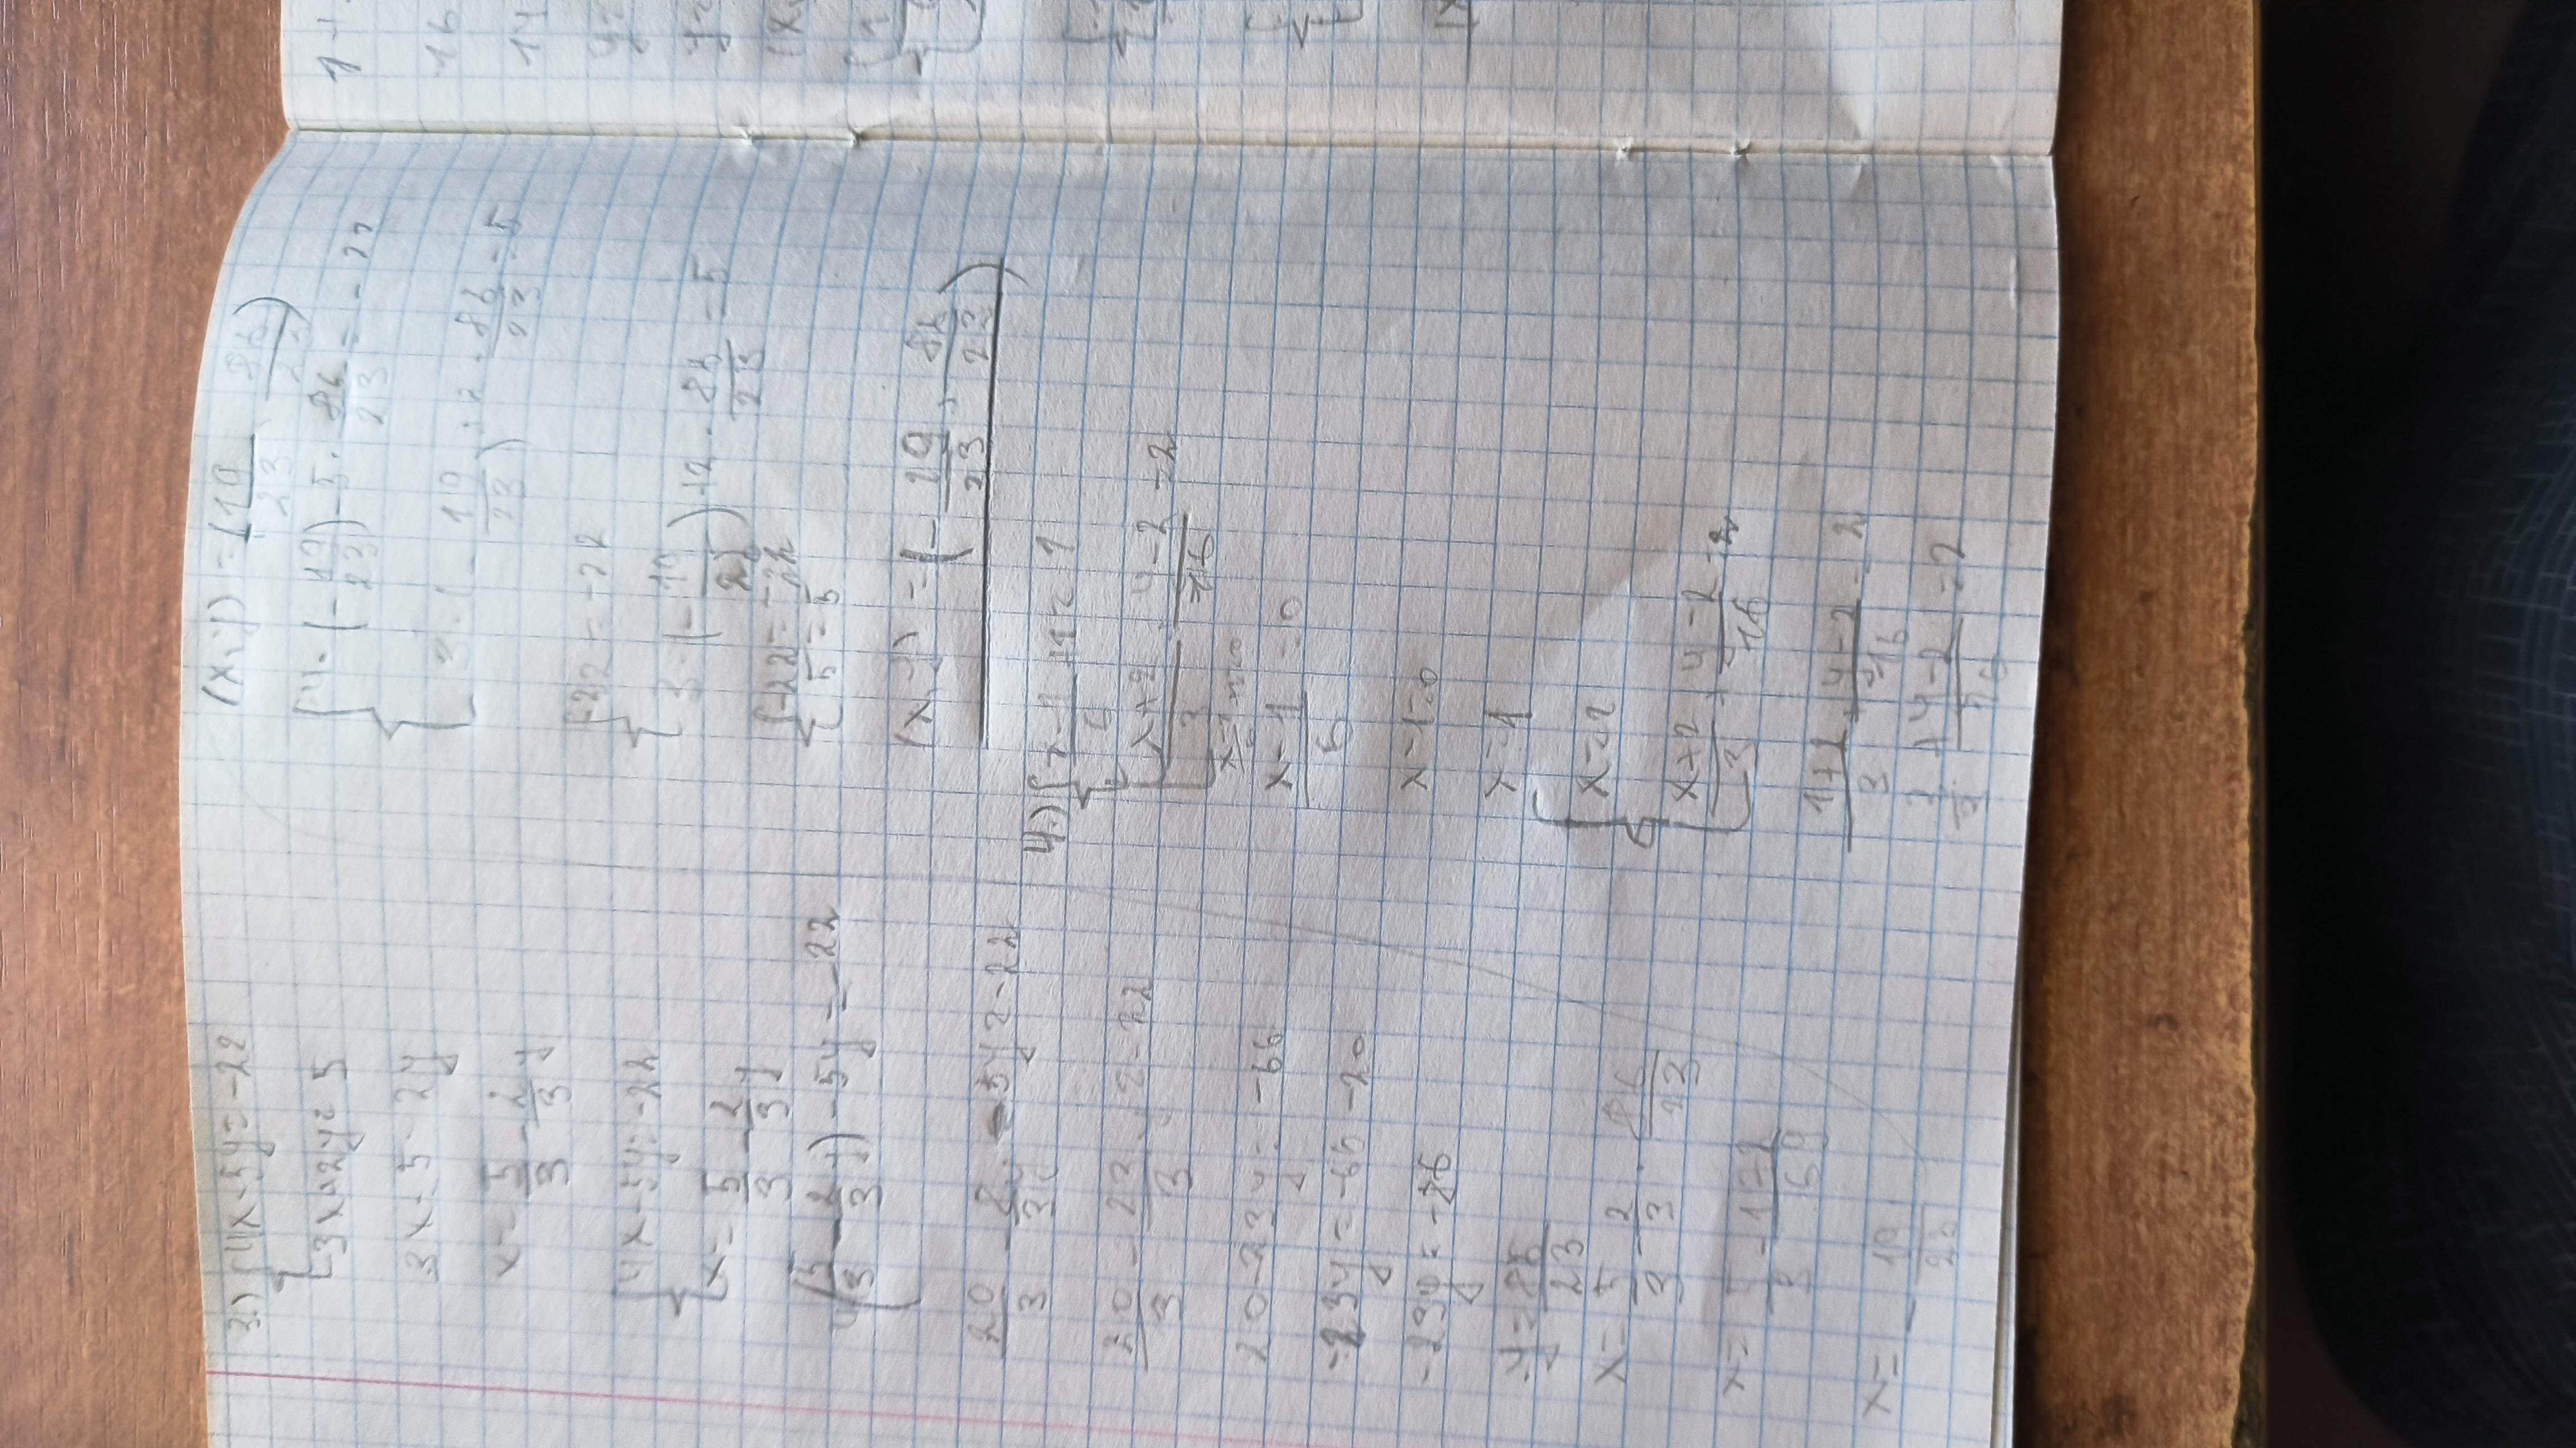 3.) { 4x-5y=-22
3x+2y=5
3x=5-2y
x=5/3-2/3y
{ 4x-5y=-22
x=5/3-2/3y
4(5/3-2/3y)-5y=-22
20/3-8y/3-5y=-22
20/3-23/3y=-22
20-23y=-66
-23y=-66-20
-23y=-86
y=86/23
x=5/3-2/3·86/23
x=5/3-172/69
x=-19/23
(x,y)=(19/23,86/23)
{ 4·(-19/23)-5·86/23=-22
3·(-19/23)+2·86/23=5
{ -22=-22
3·(-19/23)+2·86/23=5
{ -22=-22
5=5
(x,y)=(-19/23,86/23)
4.) { x-1/5+1=1
x+2/3+y-2/16=2
x-1/5=0
x-1=0
x=1
{ x=1
x+2/3+y-2/16=2
1+2/3+y-2/16=2
3/3+y-2/16=2